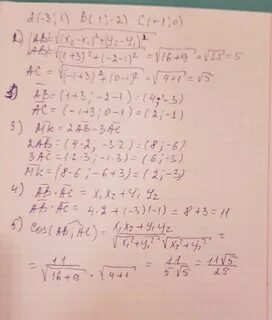 A(-3;1) B(1;-2) C(-1;0)
1) |AB| = √(x₂-x₁)²+(y₂-y₁)²
|AB| = √(1+3)²+(-2-1)² = √16+9 = √25 = 5
AC = √(-1+3)²+(0-1)² = √4+1 = √5
2) AB = (1+3; -2-1) = (4; -3)
AC = (-1+3; 0-1) = (2; -1)
3) MK = 2AB - 3AC
2AB = (4·2; -3·2) = (8; -6)
3AC = (2·3; -1·3) = (6; -3)
MK = (8-6; -6+3) = (2; -3)
4) AB · AC = x₁x₂ + y₁y₂
AB · AC = 4·2 + (-3)(-1) = 8+3 = 11
5) cos(AB; AC) = x₁x₂+y₁y₂ / √x₁²+y₁² · √x₂²+y₂² =
= 11 / √16+9 · √4+1 = 11 / 5·√5 = 11√5 / 25